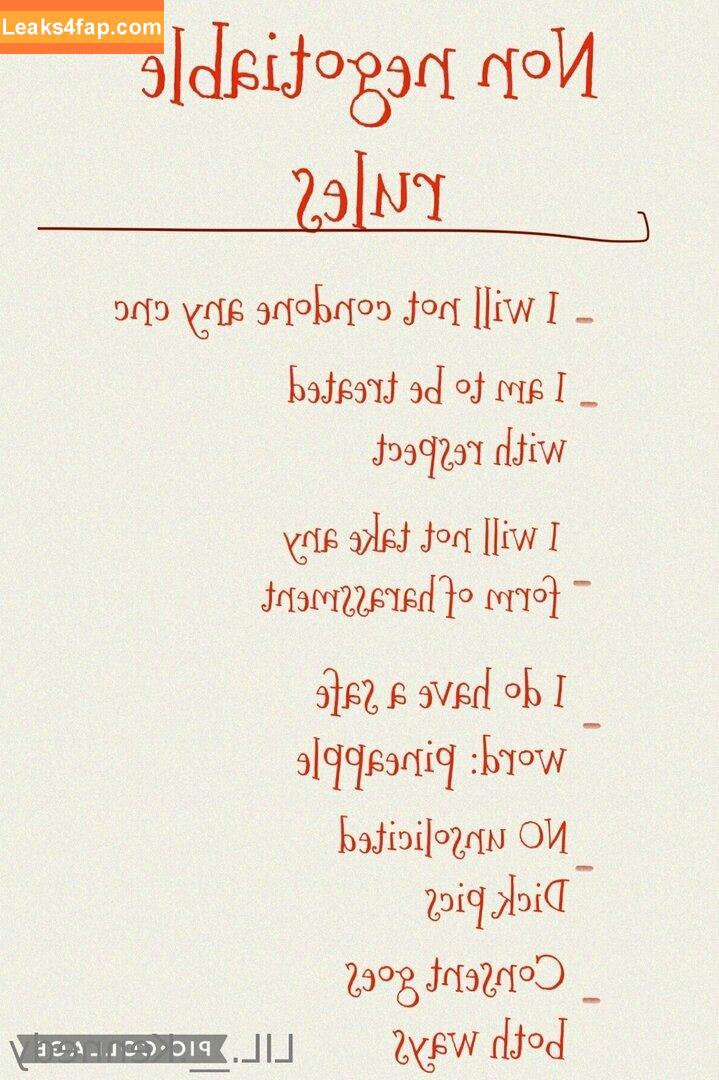 Leaks4fap.com
Non negotiable
rules
- I will not condone any cnc
- I am to be treated
with respect
I will not take any
- form of harassment
I do have a safe
- word: pineapple
NO unsolicited
- Dick pics
Consent goes
- both ways
PIC•COLLAGE
LIL._.Kennedy